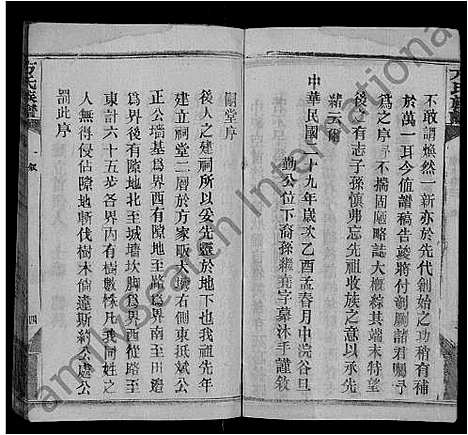 方氏族譜
不敢謂煥然一新亦於先代創始之功稍有補
於萬一耳今值譜稿告竣將付剞劂諸君囑予
為之序予不揣固陋略誌大概綜其端末特望
後之有志子孫慎弗忘先祖收族之意以承先
緒云爾
中華民國二十九年歲次乙酉孟春月中浣谷旦
勤公位下裔孫繼堯字慕沐手謹敘
祠堂序
後人之建祠所以爰先靈於地下也我祖先年
建立祠堂二層於方家畈大塆右側東抵斌公
正公墻基為界西有隙地至路為界南至田邊
為界後有隙地北至城塆坎脚為界西從路至
東計六十五步各界內有樹數株凡我同姓之
人無得侵佔隙地斬伐樹木倘違斯約公處公
罰此序
方氏族譜
敘
四
FamilySearch International